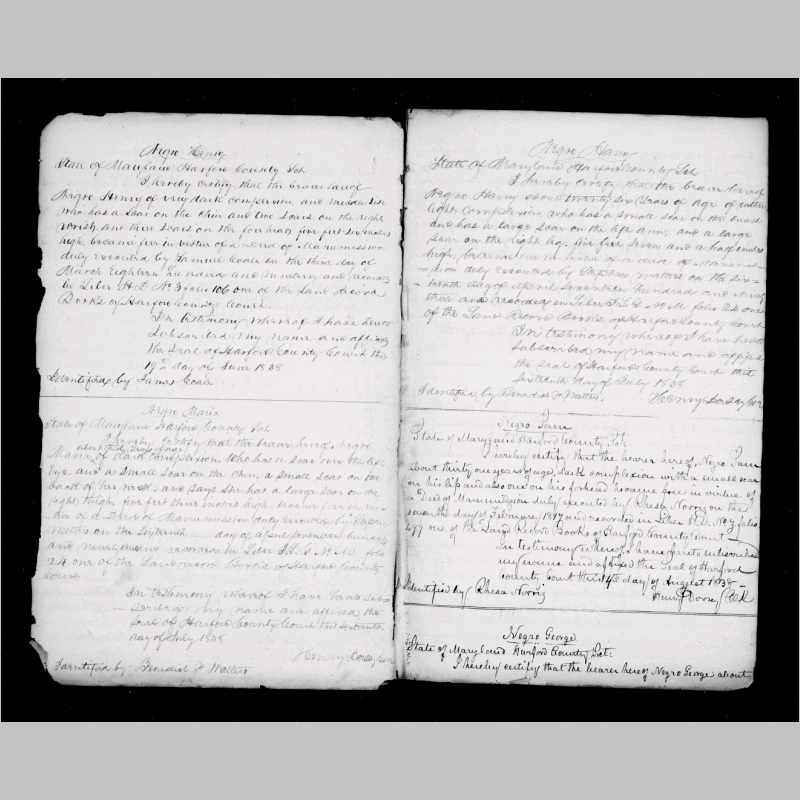 Negro Henry
State of Maryland Harford County Sct
I hereby certify that the bearer hereof
Negro Henry of very dark complexion and middle size
who has a scar on the Chin and two scars on the right
wrist, and three scars on the forehead, five feet six inches
high, became free in virtue of a deed of Manumission
duly executed by Samuel Coale on the third day of
March Eighteen hundred and and recorded
in Liber H D No folio 106 one of the Land Record
Books of Harford County Court
In testimony whereof I have hereto
subscribed my name and affixed
the Seal of Harford County Court this
19th day of June 1838
Identified by James Coale
Negro Maria
State of Maryland Harford County Sct
I hereby certify that the bearer hereof Negro
Maria of dark complexion who has a scar over the left
Eye, and a small scar on the Chin, a small scar on the
back of her neck, and says she has a large scar on the
right thigh, five feet three inches high, became free in vir-
tue of a deed of Manumission duly executed by
Watters on the Sixteenth day of April seventeen hundred
and ninety and recorded in Liber J L G No M folio
one of the Land Record Books of Harford County
Court
In testimony whereof I have hereto subs-
cribed my name and affixed the
Seal of Harford County Court this
day of July 1838
Henry Dorsey
Identified by Benedict H Watters
Negro Harry
State of Maryland Harford County Sct
I hereby certify that the bearer hereof
Negro Harry about twenty six years of age of rather
light complexion, who has a small scar on the
and has a large scar on the left arm, and a large
scar on the right leg, five feet seven and a half inches
high, became free in virtue of a deed of Manumis-
sion duly executed by Watters on the six-
teenth day of April seventeen hundred and ninety
and recorded in Liber J L G No M folio one
of the Land Record Books of Harford County Court
In testimony whereof I have hereto
subscribed my name and affixed
the seal of Harford County Court this
sixteenth day of July 1838
Identified by Benedict H Watters
Henry Dorsey
Negro Sam
State of Maryland Harford County Sct
I hereby certify that the bearer hereof, Negro Sam
about thirty one years of age, dark complexion with a small scar
on his lip and also one on his forhead became free in virtue of
a Deed of Manumission duly executed by Rhesa Norris on the
seventh day of February 1817 and recorded in Liber H D No folio
477 one of the Land Record Books of Harford County Court
In testimony whereof I have hereunto subscribed
my name and affixed the Seal of Harford
County Court this 14th day of August 1838
Identified by Rhesa Norris
Henry Dorsey Clk
Negro George
State of Maryland Harford County Sct:
I hereby certify that the bearer hereof Negro George about